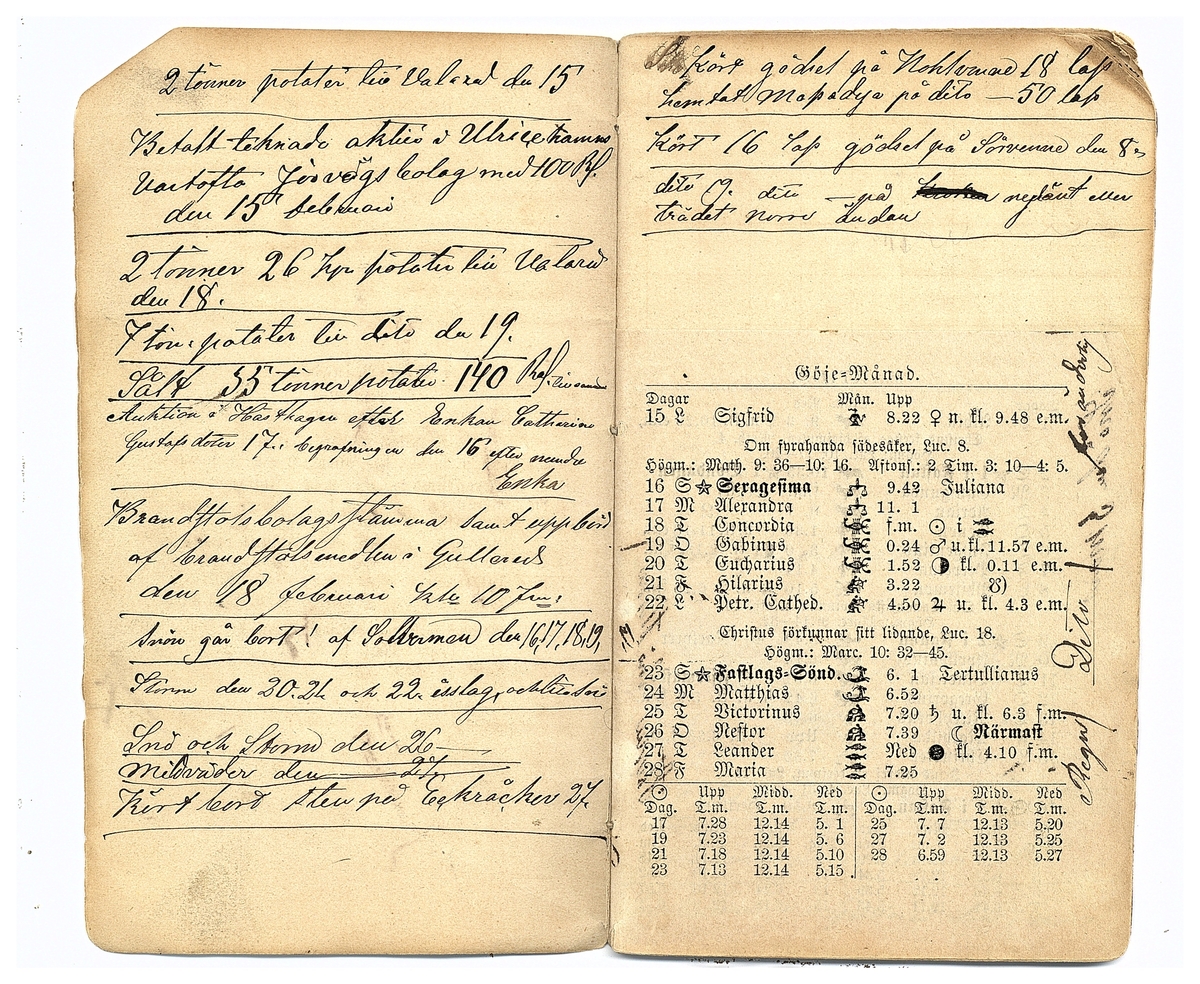 2 tönner potater till Valared den 15
Betalt teknade aktier i Ulricehamns
Vartofta Jernvägs bolag med 100 Rd.
den 15 februari
2 tönner 26 kpr potater till Valared
den 18.
7 tön: potater till dito den 19.
Sålt 55 tönner potater 140 Rd.
Auktion i Hästhagen efter Enkan Catharina
Gustafs doter 17: begrafningen den 16 efter nemde
Enka
Brandstodsbolags stämma samt uppbörd
af brandstodsmedlen i Gullered
den 18 februari kl. 10 f.m:
Snön går bort! af Solvermen den 16, 17, 18, 19,
Storm den 20. 21. och 22. isslag, och lite snö
Snö och Storm den 26
mildväder den 27,
Kört bort sten på Eekråcker 27
Kört gödsel på 18 lass
hemtat på dito — 50 lass
Kört 16 lass gödsel på Sörvenne den 8:
dito 9. dito på
trädet norre ändan
Göje-Månad.
Dagar Mån. Upp
15 L Sigfrid 8.22 ♀ n. kl. 9.48 e.m.
Om fyrahanda sädesåker, Luc. 8.
Högm.: Math. 9: 36—10: 16. Aftons.: 2 Tim. 3: 10—4: 5.
16 S ☆ Sexagesima 9.42 Juliana
17 M Alexandra 11. 1
18 T Concordia f.m. ☉ i ♓
19 O Gabinus 0.24 ♂ u. kl. 11.57 e.m.
20 T Eucharius 1.52 kl. 0.11 e.m.
21 F Hilarius 3.22 ☋)
22 L Petr. Cathed. 4.50 ♃ u. kl. 4.3 e.m.
Christus förkunnar sitt lidande, Luc. 18.
Högm.: Marc. 10: 32—45.
23 S ☆ Fastlags-Sönd. 6. 1 Tertullianus
24 M Matthias 6.52
25 T Victorinus 7.20 ♄ u. kl. 6.3 f.m.
26 O Nestor 7.39 ☾ Närmast
27 T Leander Ned ● kl. 4.10 f.m.
28 F Maria 7.25
☉ Upp Midd. Ned ☉ Upp Midd. Ned
Dag. T.m. T.m. T.m. Dag. T.m. T.m. T.m.
17 7.28 12.14 5. 1 25 7. 7 12.13 5.20
19 7.23 12.14 5. 6 27 7. 2 12.13 5.25
21 7.18 12.14 5.10 28 6.59 12.13 5.27
23 7.13 12.14 5.15
Regn
Dito